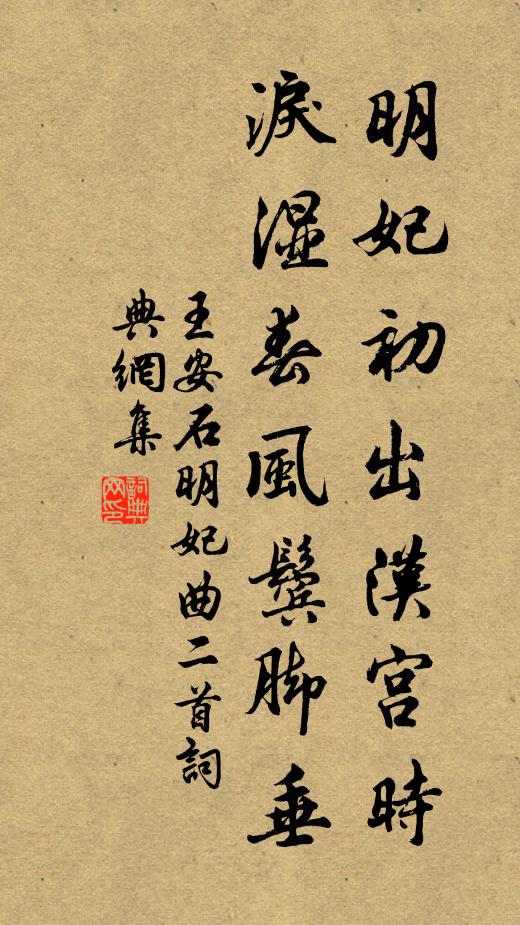 明妃初出漢宫時
淚濕春風鬢脚垂
王安石明妃曲二首詞
典網集
詞典網印